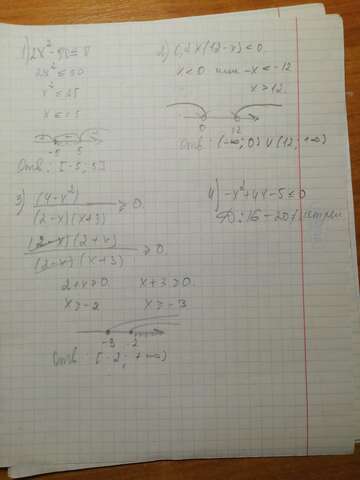 1) 2x² - 50 ≤ 0
2x² ≤ 50
x² ≤ 25
x ≤ ±5
-5 5
Отв: [-5; 5]
2) 1,2x(12-x) < 0
x < 0 или -x < -12
x > 12
0 12
Отв: (-∞; 0) ∪ (12; +∞)
3) (4-x²) / (2-x)(x+3) ≥ 0
(2-x)(2+x) / (2-x)(x+3) ≥ 0
2+x ≥ 0 x+3 ≥ 0
x ≥ -2 x ≥ -3
-3 -2
Отв: [-2; +∞)
4) -x²+4x-5 ≤ 0
D: 16-20